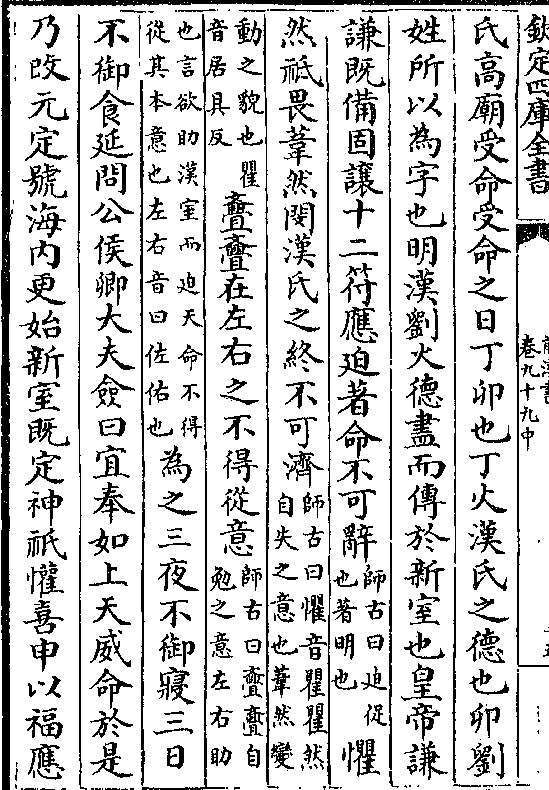 欽定四庫全書
卷九十九中
氏高廟受命受命之日丁卯也丁火漢氏之德也卯劉
姓所以為字也明漢劉火德盡而傳於新室也皇帝謙
謙既備固讓十二符應迫著命不可辭師古曰迫促也著明也懼
然祗畏葦然閔漢氏之終不可濟師古曰懼音瞿瞿然自失之意也葦然變
動之貌也瞿音居具反亹亹在左右之不得從意師古曰亹亹自勉之意左右助
也言欲助漢室而迫天命不得從其本意也左右音曰佐佑也為之三夜不御寢三日
不御食延問公侯卿大夫僉曰宜奉如上天威命於是
乃改元定號海內更始新室既定神祇懽喜申以福應